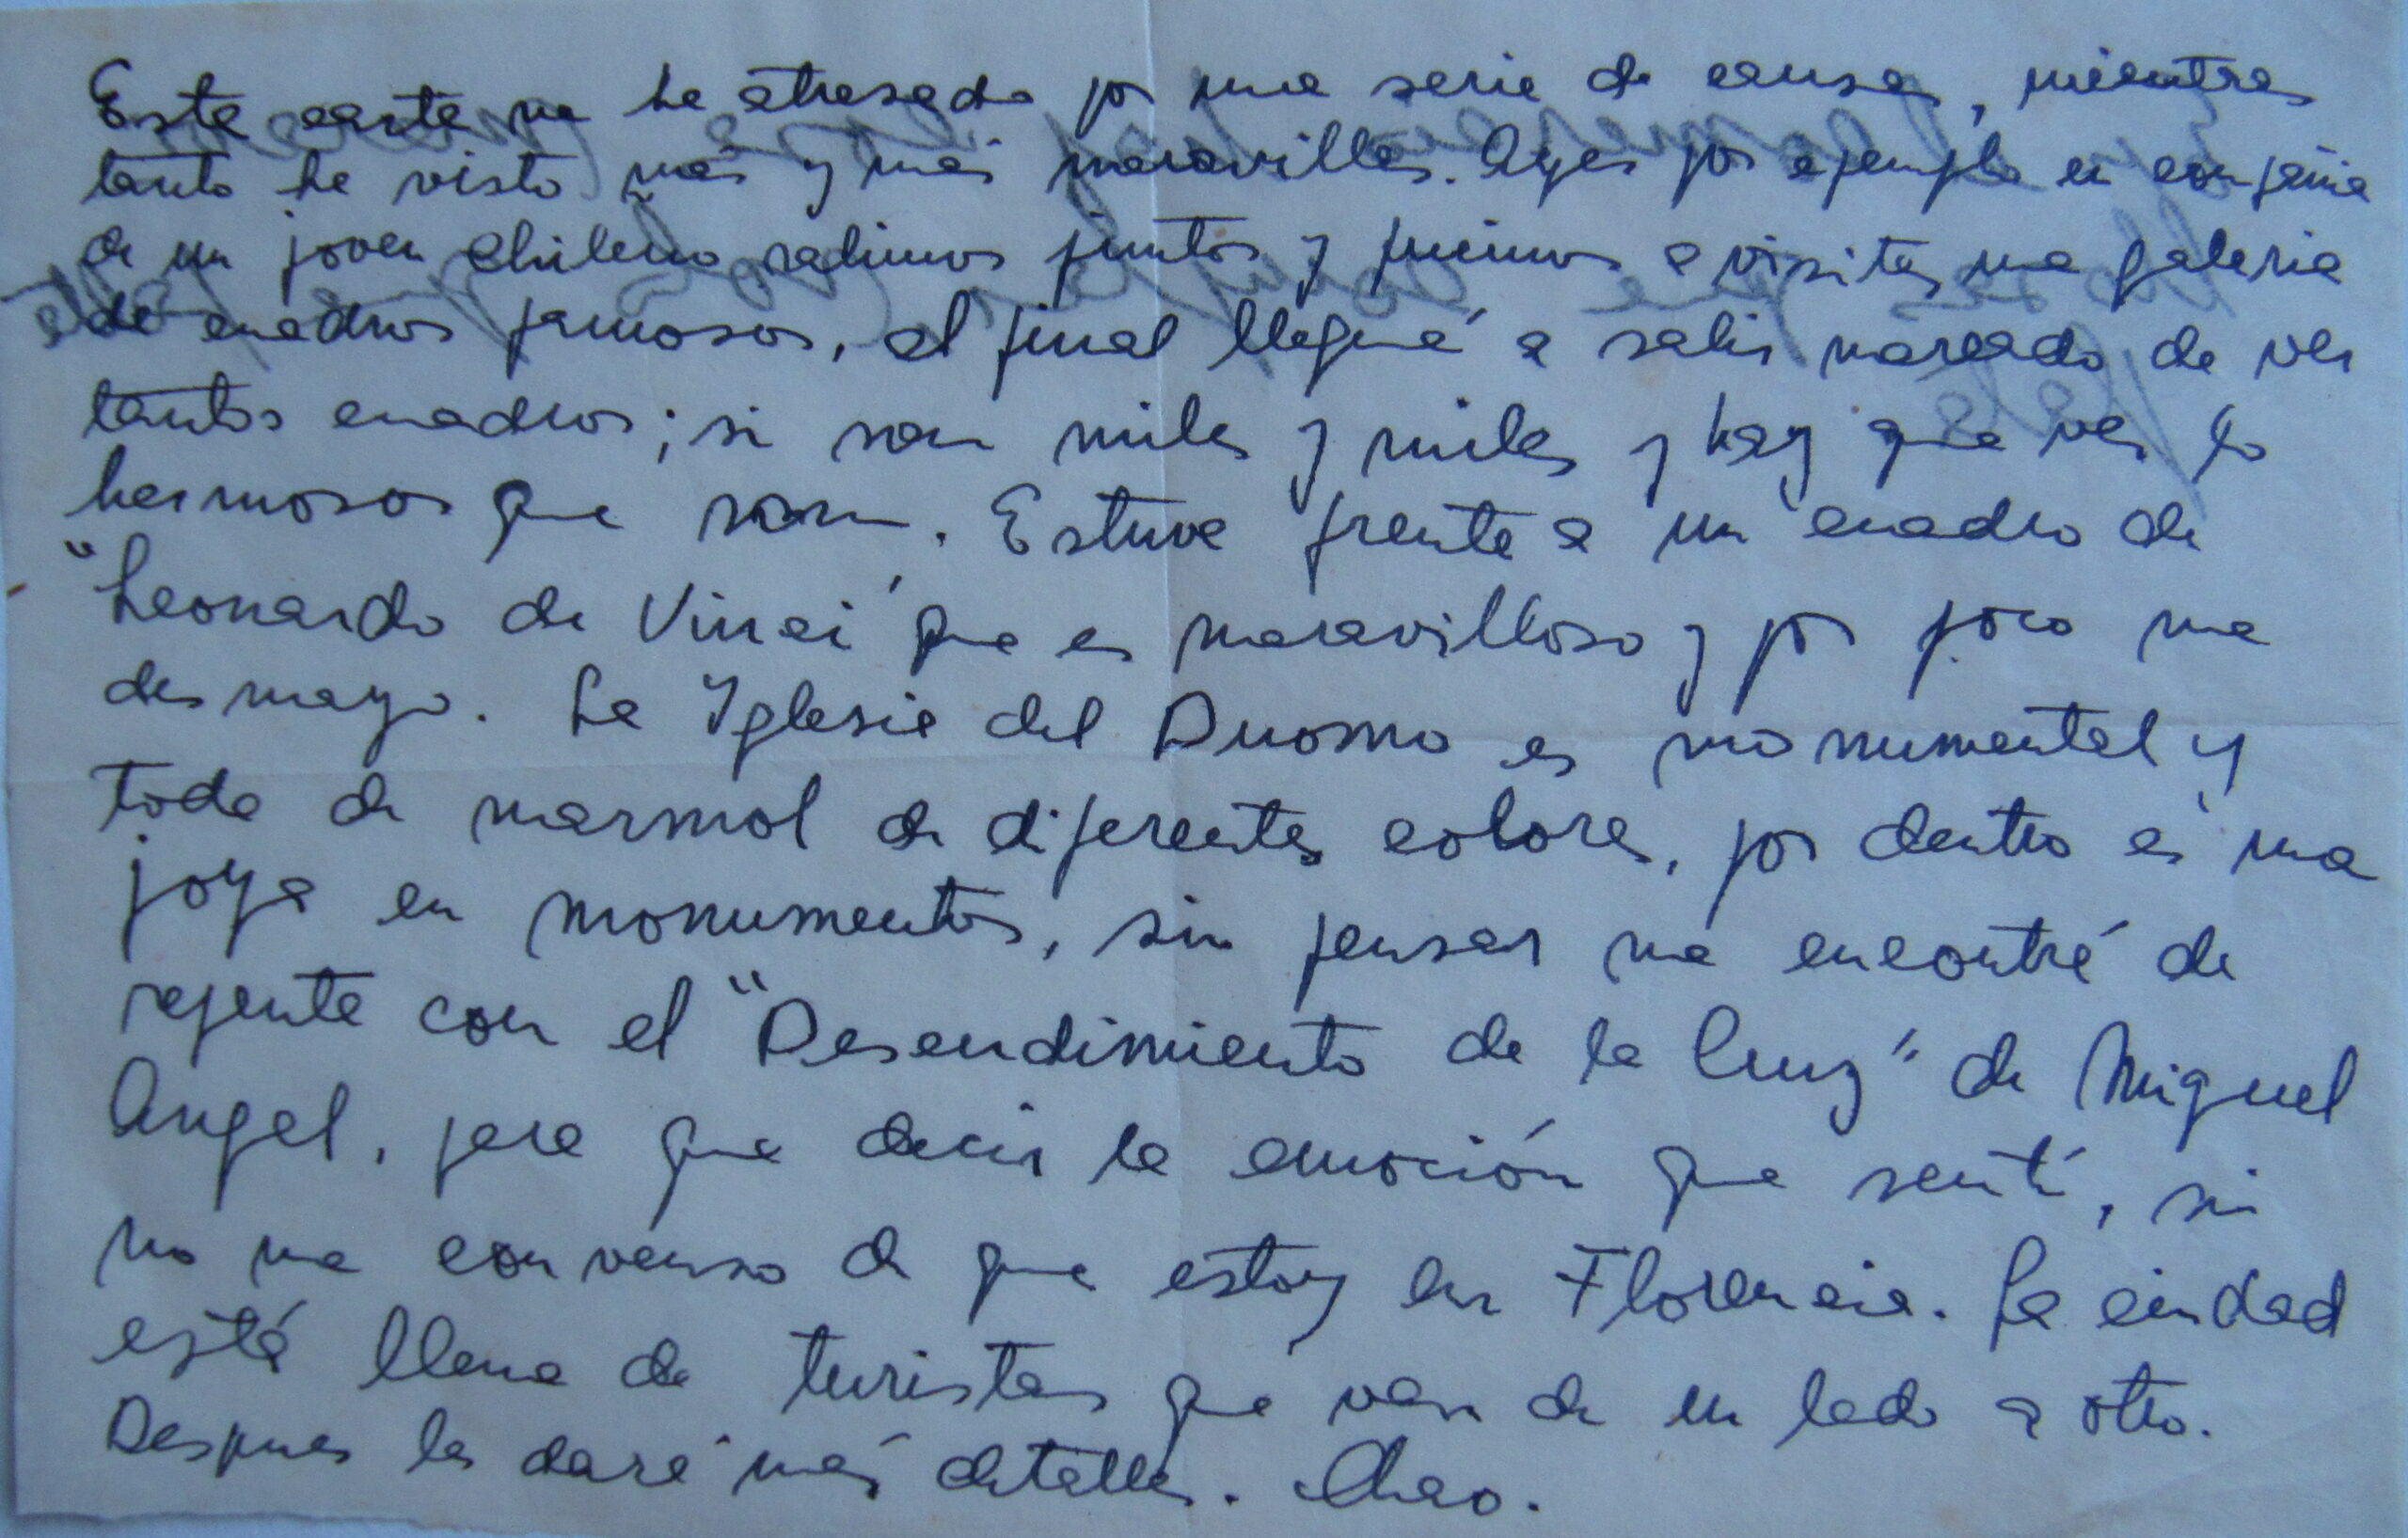 Esta carta me ha atrasado por una serie de causas, mientras
tanto he visto más y más maravillas. Ayer por ejemplo en compañia
de un joven chileno salimos juntos y fuimos a visitar una galeria
de cuadros famosos, al final llegué a salir mareado de ver
tantos cuadros; si son miles y miles y hay que ver lo
hermosos que son. Estuve frente a un cuadro de
"Leonardo de Vinci" que es maravilloso y por poco me
desmayo. La Iglesia del Duomo es monumental y
toda de marmol de diferentes colores, por dentro es una
joya en monumentos, sin pensar me encontré de
repente con el "Desendimiento de la Cruz" de Miguel
Angel, para que decir la emoción que sentí, si
no me convenso de que estoy en Florencia. La ciudad
está llena de turistas que van de un lado a otro.
Despues les daré más detalles. Chao.